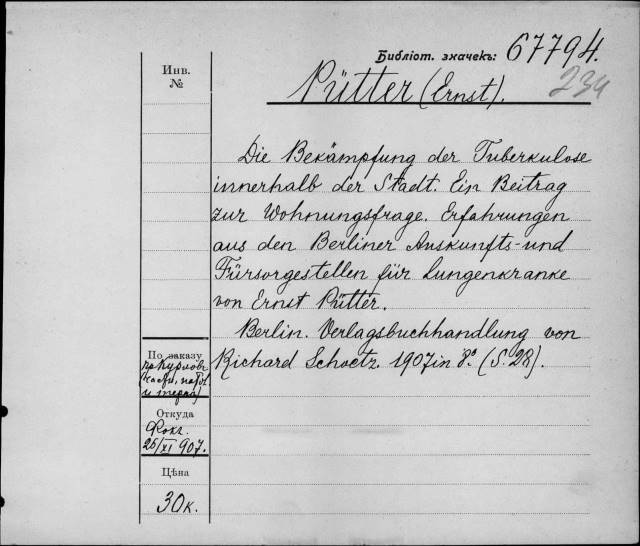 Библіот. значекъ: 67794.
234
Инв.
№
Pütter (Ernst).
Die Bekämpfung der Tuberkulose
innerhalb der Stadt. Ein Beitrag
zur Wohnungsfrage. Erfahrungen
aus den Berliner Auskunfts- und
Fürsorgestellen für Lungenkranke
von Ernst Pütter.
Berlin. Verlagsbuchhandlung von
Richard Schoetz 1907 in 8º. (S. 28).
По заказу
Откуда
Фокг.
26/XI 907.
Цѣна
30 к.